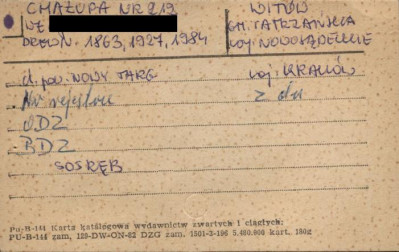 CHAŁUPA NR 219
WŁ
DREWN. 1863, 1927, 1984
WITÓW
GM. TATRZAŃSKA
WOJ. NOWOSĄDECKIE
d. pow. NOWY TARG
woj. KRAKÓW
Nr rejestru
z dn
ODZ
BDZ
SOSRĘB
Pu-B-144 Karta katalogowa wydawnictw zwartych i ciągłych.
PU-B-144 zam. 129-DW-ON-82 DZG zam. 1501-3-196 5.460.000 kart. 180g